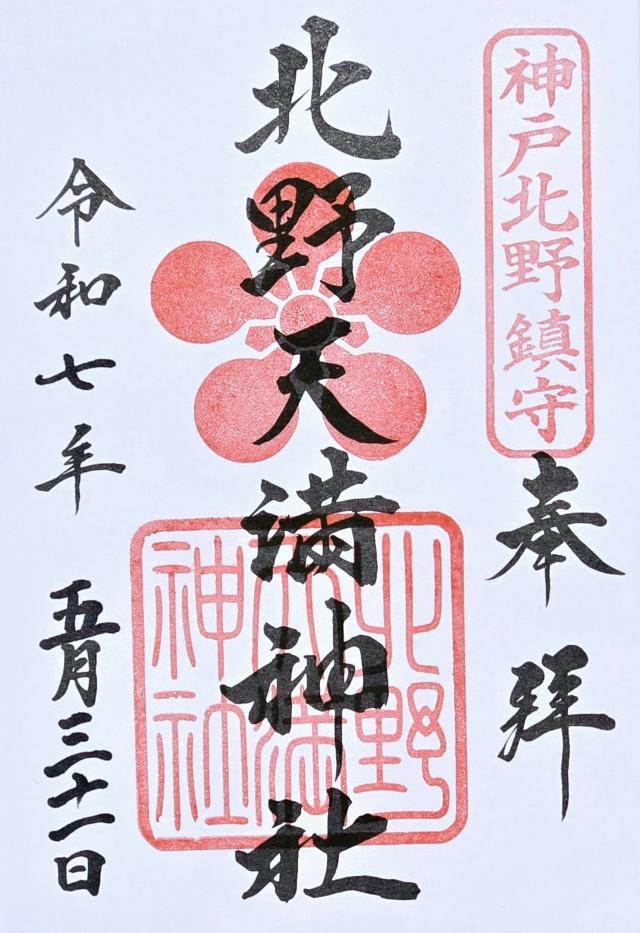 神戸北野鎮守
奉拝
北野天満神社
北野
天満
神社
令和七年 五月三十一日